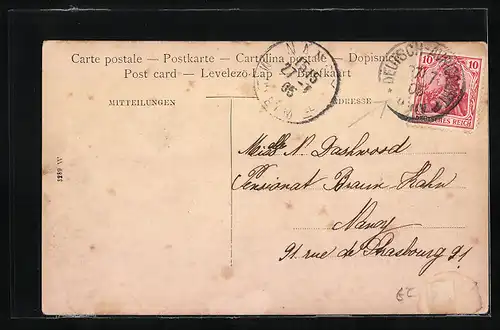 Carte postale — Postkarte — Cartolina postale — Dopisnice
Post card — Levelező-Lap — Briefkaart
MITTEILUNGEN
ADRESSE
10 10
DEUTSCHES REICH
15-16
27-7
05
Melle N. Dashwood
Pensionat Braun-Hahn
Nancy
91 rue de Phasbourg 91
5299 W